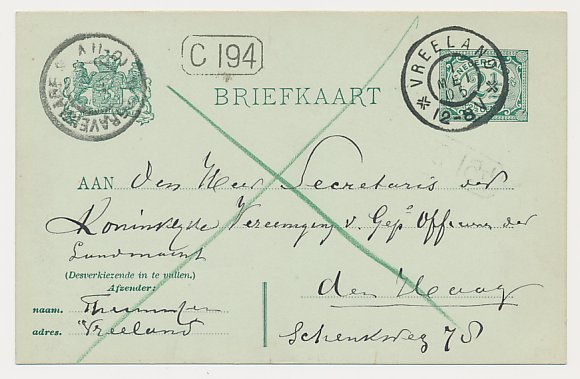 C 194
VREELAND
12-8V
BRIEFKAART
AAN den Heer Secretaris der
Koninklijke Vereeniging v. Gep. Officieren der
Landmacht
(Desverkiezende in te vullen.)
Afzender:
den Haag
naam.
adres. Vreeland
Schenkweg 78